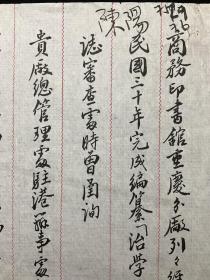 商務印書館重慶分廠列
陳陽
民國三十年完成編纂治學
誌審查處時曾函詢
貴廠總管理處駐港辦事處